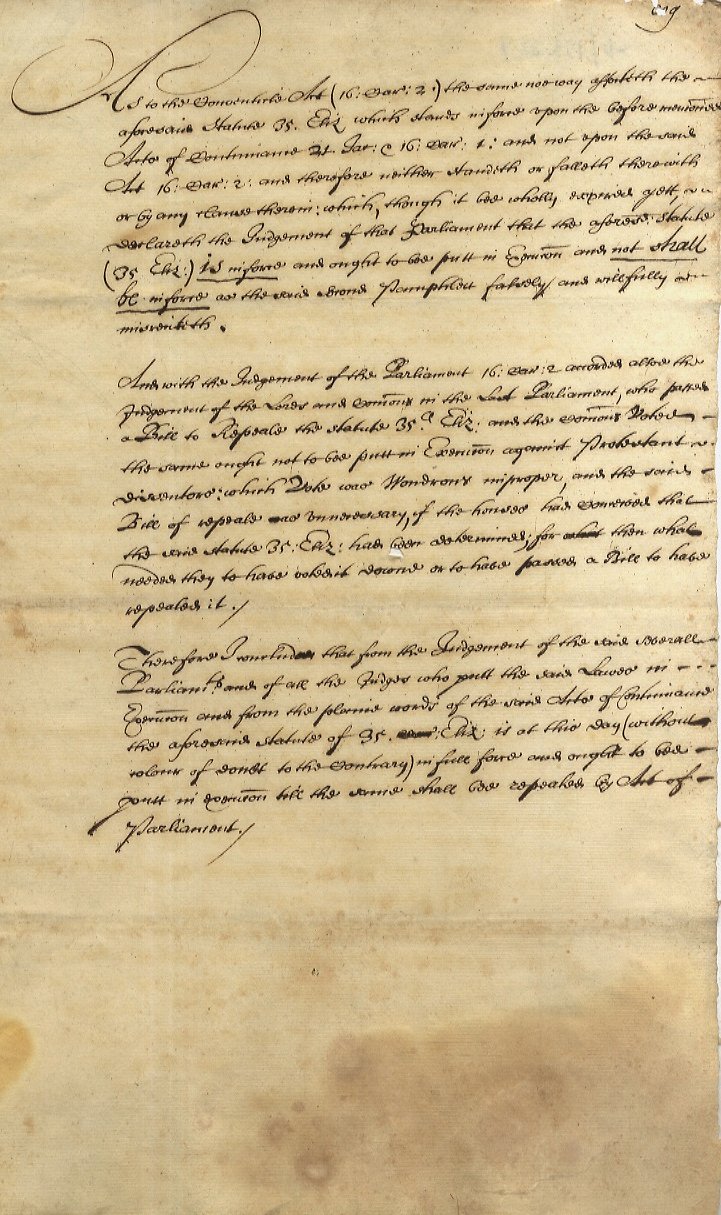 As to the Conventicle Act (16: Car: 2.) the same noe way affecteth the
aforesaid Statute 35. Eliz which stands in force upon the before mencõned
Acts of Continuance 21 Jac: & 16: Car: 1: and not upon the said
Act 16: Car: 2: and therefore neither standeth or falleth therewith
or by any clause therein: which, though it bee wholly expired yett,
declareth the Judgement of that Parliament that the aforesd: Statute
(35 Eliz:) is in force and ought to bee putt in Execucõn and not shall
be in force as the said second Pamphlett falsely and willfully
misreciteth.
And with the Judgement of the Parliament 16: Car: 2 accorded alsoe the
Judgement of the Lords and Comõns in the Last Parliament, who passed
a Bill to Repeale the statute 35.º Eliz: and the Comõns Voted
the same ought not to bee putt in Execucõn against Protestant
dissentors: which Vote was Wondrous improper, and the said
Bill of repeale was unnecessary, if the houses had Conceived that
the said statute 35: Eliz: had been determined; for what then what
needed they to have voted it downe or to have passed a Bill to have
repealed it./
Therefore I conclude that from the Judgement of the said severall
Parliamts and of all the Judges who putt the said Lawes in
Execucõn and from the plaine words of the said Acts of Continuance
the aforesaid statute of 35. Eliz: is at this day (without
colour of doubt to the Contrary) in full force and ought to bee
putt in execucõn till the same shall bee repealed by Act of
Parliament./